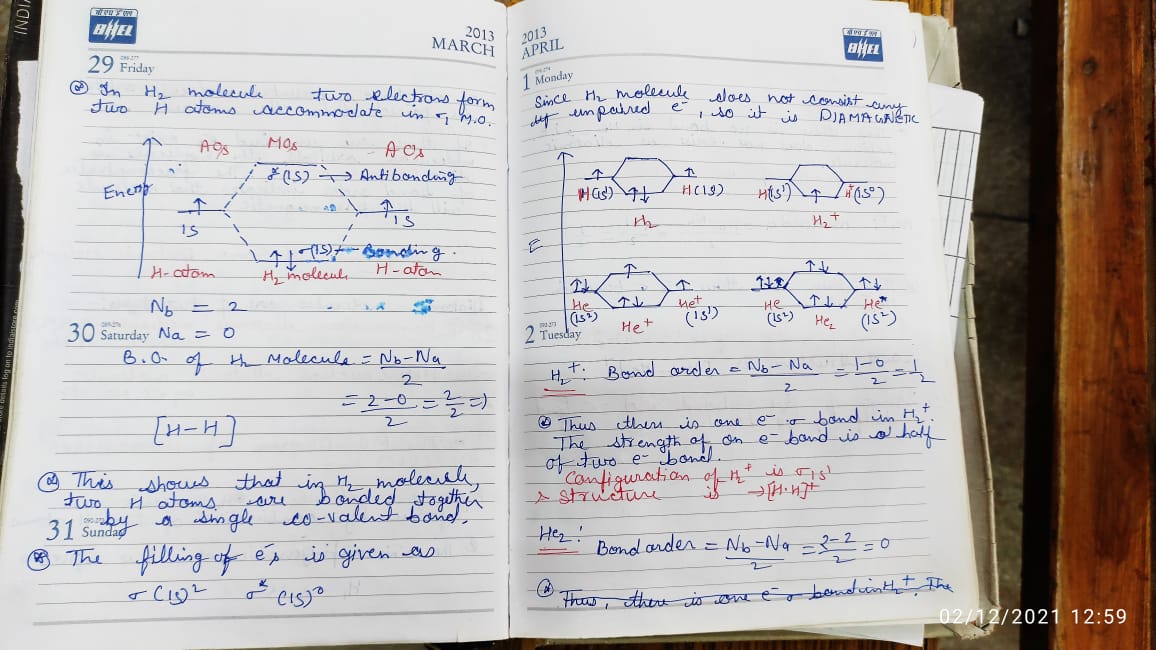 BHEL
2013
MARCH
29 Friday
In H2 molecule two electrons form
two H atoms accommodate in σ, M.O.
AOs MOs AOs
σ*(1S) → Antibonding
Energy
1S
1S
σ(1S) Bonding.
H-atom H2 molecule H-atom
Nb = 2
30 Saturday Na = 0
B.O. of H2 Molecule = Nb-Na
2
= 2-0 = 2 =)
2 2
[H-H]
This shows that in H2 molecule,
two H atoms are bonded together
by a single co-valent bond.
31 Sunday
The filling of e's is given as
σ(1S)² σ*(1S)⁰
2013
APRIL
BHEL
1 Monday
Since H2 molecule does not consist any
unpaired e⁻, so it is DIAMAGNETIC
H(1S¹) H(1S) H(1S¹) H⁺(1S⁰)
H2 H2⁺
E
He He⁺ He He
(1S²) (1S¹) (1S²) (1S²)
He⁺ He2
2 Tuesday
H2⁺: Bond order = Nb-Na = 1-0 = 1
2 2 2
Thus there is one e⁻ σ bond in H2⁺
The strength of an e⁻ bond is a half
of two e⁻ bond.
Configuration of H2⁺ is σ1S¹
& Structure is → [H·H]⁺
He2:
Bond order = Nb-Na = 2-2 = 0
2 2
Thus, there is one e⁻ σ bond in H2⁺. The
02/12/2021 12:59